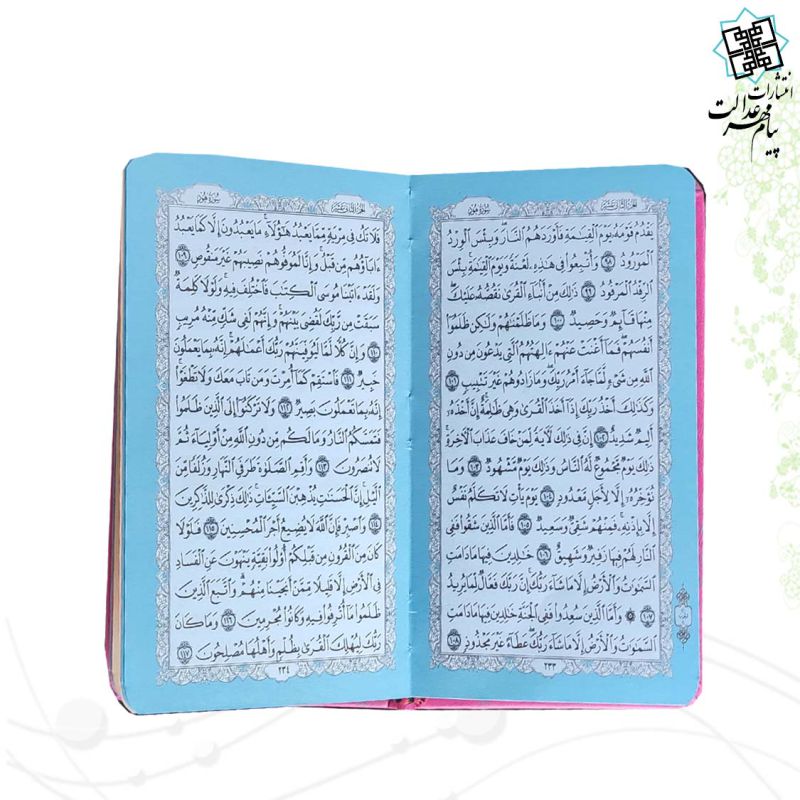 انتشارات
پیام مهر عدالت
الجزء الثانی عشر سورة هود
يَقْدُمُ قَوْمَهُ يَوْمَ الْقِيَٰمَةِ فَأَوْرَدَهُمُ النَّارَ وَبِئْسَ الْوِرْدُ
الْمَوْرُودُ ٩٨ وَأُتْبِعُوا فِي هَٰذِهِ لَعْنَةً وَيَوْمَ الْقِيَٰمَةِ بِئْسَ
الرِّفْدُ الْمَرْفُودُ ٩٩ ذَٰلِكَ مِنْ أَنْبَاءِ الْقُرَىٰ نَقُصُّهُ عَلَيْكَ
مِنْهَا قَائِمٌ وَحَصِيدٌ ١٠٠ وَمَا ظَلَمْنَٰهُمْ وَلَٰكِنْ ظَلَمُوا
أَنْفُسَهُمْ فَمَا أَغْنَتْ عَنْهُمْ ءَالِهَتُهُمُ الَّتِي يَدْعُونَ مِنْ دُونِ
اللَّهِ مِنْ شَيْءٍ لَمَّا جَاءَ أَمْرُ رَبِّكَ وَمَا زَادُوهُمْ غَيْرَ تَتْبِيبٍ ١٠١
وَكَذَٰلِكَ أَخْذُ رَبِّكَ إِذَا أَخَذَ الْقُرَىٰ وَهِيَ ظَٰلِمَةٌ إِنَّ أَخْذَهُ
أَلِيمٌ شَدِيدٌ ١٠٢ إِنَّ فِي ذَٰلِكَ لَءَايَةً لِمَنْ خَافَ عَذَابَ الْءَاخِرَةِ
ذَٰلِكَ يَوْمٌ مَجْمُوعٌ لَهُ النَّاسُ وَذَٰلِكَ يَوْمٌ مَشْهُودٌ ١٠٣ وَمَا
نُؤَخِّرُهُ إِلَّا لِأَجَلٍ مَعْدُودٍ ١٠٤ يَوْمَ يَأْتِ لَا تَكَلَّمُ نَفْسٌ
إِلَّا بِإِذْنِهِ فَمِنْهُمْ شَقِيٌّ وَسَعِيدٌ ١٠٥ فَأَمَّا الَّذِينَ شَقُوا فَفِي
النَّارِ لَهُمْ فِيهَا زَفِيرٌ وَشَهِيقٌ ١٠٦ خَٰلِدِينَ فِيهَا مَا دَامَتِ
السَّمَٰوَٰتُ وَالْأَرْضُ إِلَّا مَا شَاءَ رَبُّكَ إِنَّ رَبَّكَ فَعَّالٌ لِمَا يُرِيدُ
١٠٧ ۞ وَأَمَّا الَّذِينَ سُعِدُوا فَفِي الْجَنَّةِ خَٰلِدِينَ فِيهَا مَا دَامَتِ
السَّمَٰوَٰتُ وَالْأَرْضُ إِلَّا مَا شَاءَ رَبُّكَ عَطَاءً غَيْرَ مَجْذُوذٍ ١٠٨
٢٣٣
الجزء الثانی عشر سورة هود
فَلَا تَكُ فِي مِرْيَةٍ مِمَّا يَعْبُدُ هَٰؤُلَاءِ مَا يَعْبُدُونَ إِلَّا كَمَا يَعْبُدُ
ءَابَاؤُهُمْ مِنْ قَبْلُ وَإِنَّا لَمُوَفُّوهُمْ نَصِيبَهُمْ غَيْرَ مَنْقُوصٍ ١٠٩
وَلَقَدْ ءَاتَيْنَا مُوسَى الْكِتَٰبَ فَاخْتُلِفَ فِيهِ وَلَوْلَا كَلِمَةٌ
سَبَقَتْ مِنْ رَبِّكَ لَقُضِيَ بَيْنَهُمْ وَإِنَّهُمْ لَفِي شَكٍّ مِنْهُ مُرِيبٍ
١١٠ وَإِنَّ كُلًّا لَمَّا لَيُوَفِّيَنَّهُمْ رَبُّكَ أَعْمَٰلَهُمْ إِنَّهُ بِمَا يَعْمَلُونَ
خَبِيرٌ ١١١ فَاسْتَقِمْ كَمَا أُمِرْتَ وَمَنْ تَابَ مَعَكَ وَلَا تَطْغَوْا
إِنَّهُ بِمَا تَعْمَلُونَ بَصِيرٌ ١١٢ وَلَا تَرْكَنُوا إِلَى الَّذِينَ ظَلَمُوا
فَتَمَسَّكُمُ النَّارُ وَمَا لَكُمْ مِنْ دُونِ اللَّهِ مِنْ أَوْلِيَاءَ ثُمَّ
لَا تُنْصَرُونَ ١١٣ وَأَقِمِ الصَّلَوٰةَ طَرَفَيِ النَّهَارِ وَزُلَفًا مِنَ
الَّيْلِ إِنَّ الْحَسَنَٰتِ يُذْهِبْنَ السَّيِّئَاتِ ذَٰلِكَ ذِكْرَىٰ لِلذَّٰكِرِينَ
١١٤ وَاصْبِرْ فَإِنَّ اللَّهَ لَا يُضِيعُ أَجْرَ الْمُحْسِنِينَ ١١٥ فَلَوْلَا
كَانَ مِنَ الْقُرُونِ مِنْ قَبْلِكُمْ أُولُوا بَقِيَّةٍ يَنْهَوْنَ عَنِ الْفَسَادِ
فِي الْأَرْضِ إِلَّا قَلِيلًا مِمَّنْ أَنْجَيْنَا مِنْهُمْ وَاتَّبَعَ الَّذِينَ
ظَلَمُوا مَا أُتْرِفُوا فِيهِ وَكَانُوا مُجْرِمِينَ ١١٦ وَمَا كَانَ
رَبُّكَ لِيُهْلِكَ الْقُرَىٰ بِظُلْمٍ وَأَهْلُهَا مُصْلِحُونَ ١١٧
٢٣٤